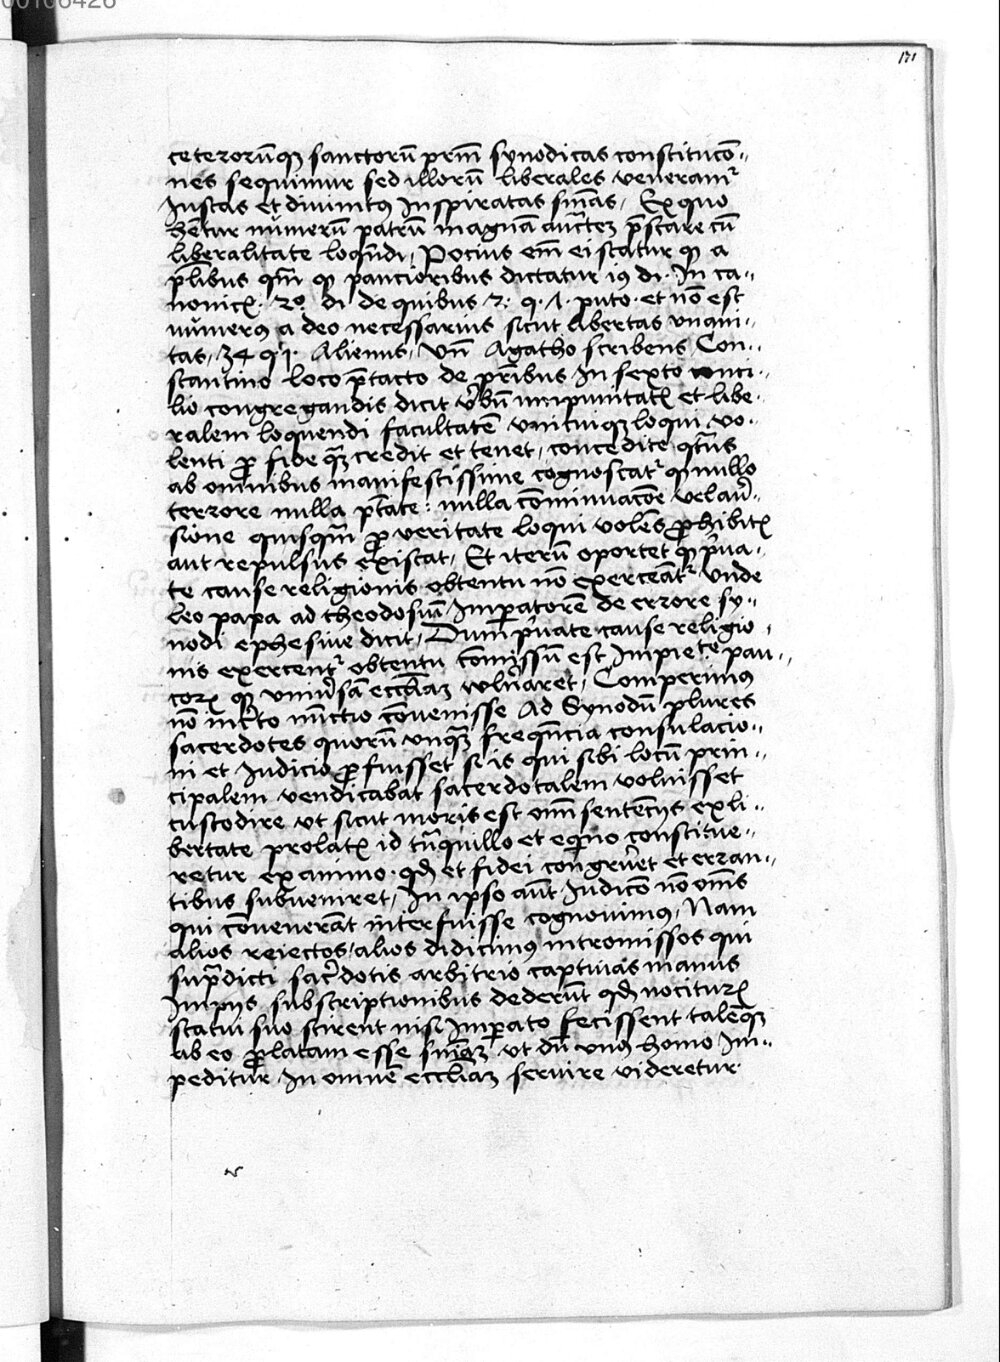 00106426
131
ceterorūq; sanctorū prm̄ synodicas constitucō-
nes sequimur sed illorū liberales veneramr
Iustas et diuinitus Inspiratas sn̄ias, Ex quo
hētur numerū patrū magnā auctēz p̄stare cū
liberalitate loqn̄di, Pocius em̄ ei statur qd a
pl̄ibus qm̄ qd paucioribus dictatur 19 di. In ca-
nonicꝫ. 20 di de quibus 2. q. 1. puto. et nō est
numerus a deo necessarius sicut libertas vnani-
tas, 34 q 1. Alienus, Vn̄ Agatho scribens Con-
stantino loco p̄tacto de pr̄ibus In sexto conci-
lio congregandis dicit v̄bū impunitatꝫ et libe-
ralem loquendi facultatē vnicuiq; loqui vo-
lenti ꝓ fide quā credit et tenet, concedite qt̄nus
ab omnibus manifestissime cognoscatr qd nullo
terrore nulla ptāte: nulla cōminuacōe vel auer-
sione quisqm̄ ꝓ veritate loqui volēs ꝓhibitꝫ
aut repulsus existat, Et iterū oportet qd p̄ua-
te cause religionis obtentu nō exerceātr vnde
leo papa ad theodosiū Imperatorē de errore sy-
nodi ephesine dicit, Dum p̄uate cause religio
nis exercentr obtentu cōmissū est Impietate pau-
corꝫ qd vniūsā eccl̄iaz vuln̄aret, Comperimus
nō incerto nūctio cōuenisse Ad Synodū plures
sacerdotes quorū vnquā frequēcia consulacio-
ni et Iudicio ꝓfuisset si is qui sibi locū prin-
cipalem vendicabat sacerdotalem voluisset
custodire vt sicut moris est om̄ sentencys ex li-
bertate prolatꝫ id trāquillo et equo constitue-
retur examino. qd et fidei congrueret et erran-
tibus subueniret, In ipso aūt Iudicō nō om̄s
qui cōuenerāt interfuisse cognouimus, Nam
alios reiectos, alios didicimus intromissos qui
supradicti sacerdotis arbitrio captiuas manus
Impys subscriptionibus dederūt qd nociturꝫ
statui suo scirent nisi Imperato fecissent talēq;
ab eo ꝓlatam esse sn̄iaꝫ vt dū vnus homo Im-
peditur In omnē eccliaz seruire videretur